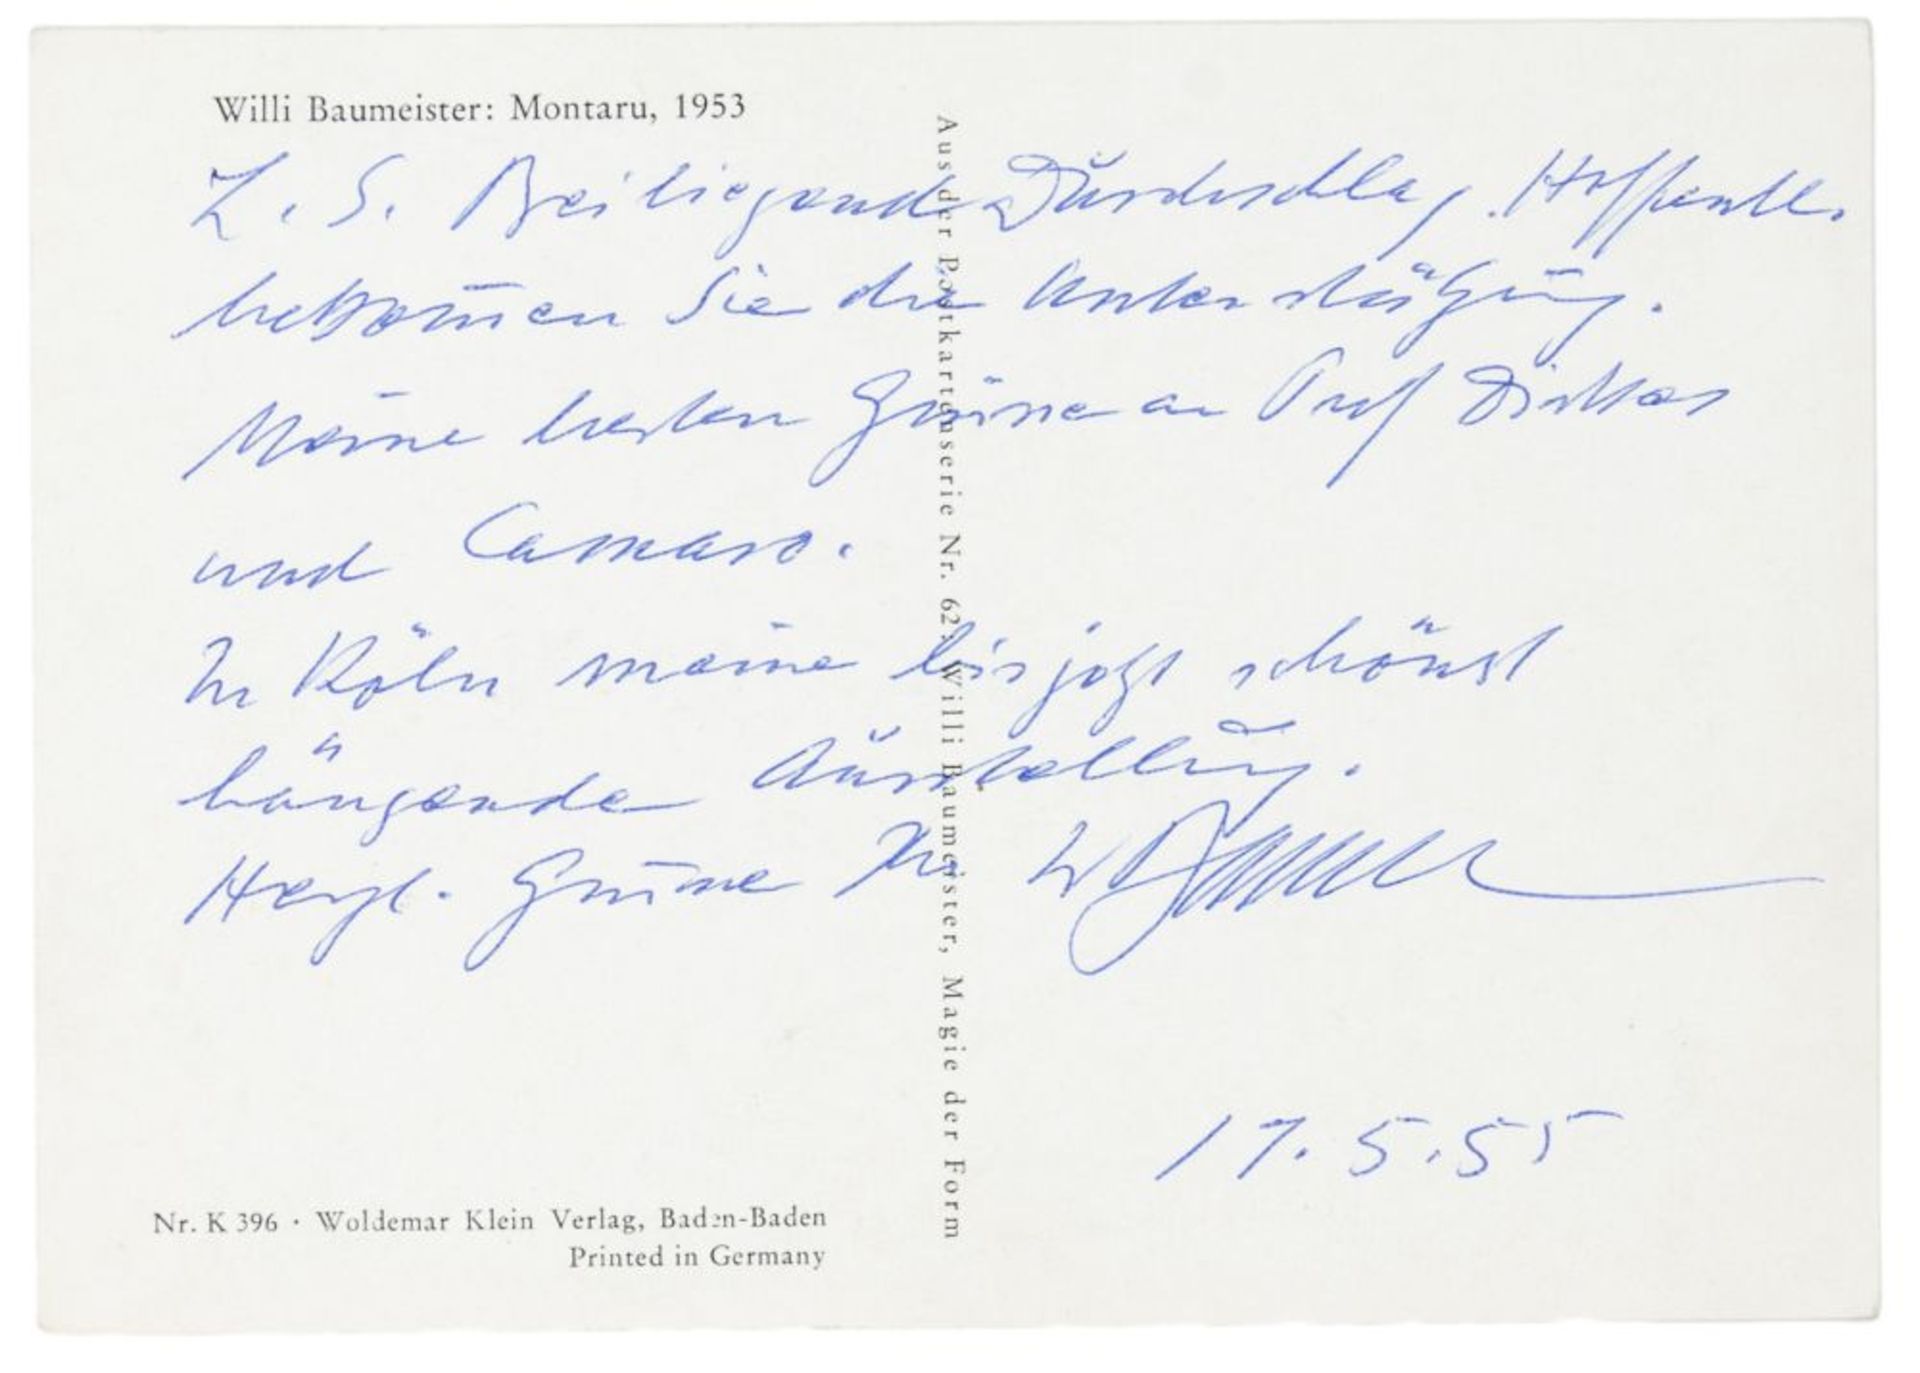 Willi Baumeister: Montaru, 1953
L. S. Beiliegend Durchschlag. Hoffentl.
bekom̅en Sie die Unterstützung.
Meine besten Grüsse an Prof Dirkes
und Camaro.
In Köln meine bis jetzt schönst
hängende Ausstellung.
Herzl. Grüsse Ihr W Baumeister
17.5.55
Nr. K 396 · Woldemar Klein Verlag, Baden-Baden
Printed in Germany
Aus der Postkartenserie Nr. 62: Willi Baumeister, Magie der Form